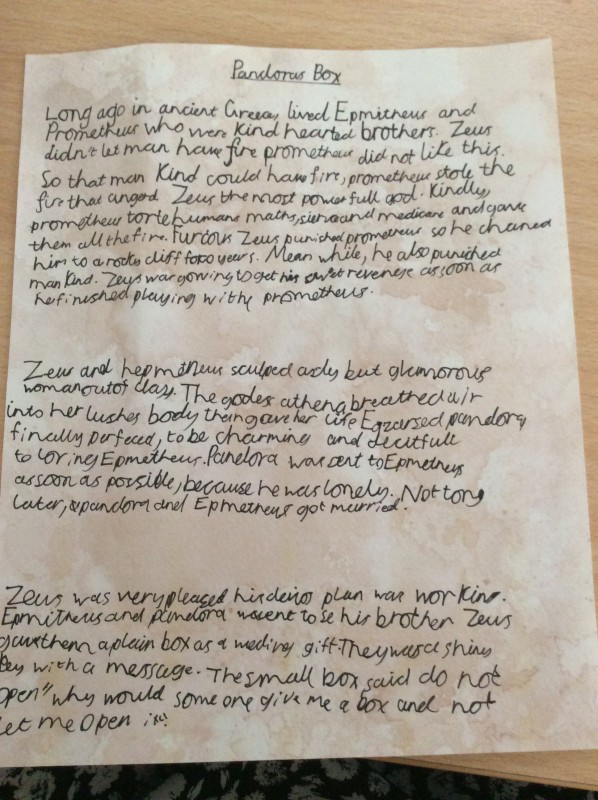 Pandoras Box
Long ago in ancient Greecy lived Epmitheus and
Prometheus who were kind hearted brothers. Zeus
didn't let man have fire prometheus did not like this.
So that man Kind could have fire, prometheus stole the
fire that angerd Zeus the most power full god. Kindly
prometheus torte humans maths, and medicare and gave
them all the fire. Furious Zeus punished prometheus so he chaned
him to a rocky cliff for years. Mean while, he also punished
man kind. Zeus was gowing to get his sweet revenge as soon as
he finished playing withy prometheus.
Zeus and hepmitheus sculped a but glamorous
woman out of clay. The godes athena breathed air
into her lushes body then gave her life pandora
finally perfeced, to be charming and decitfull
to loving Epmetheus. Pandora was sent to Epmetheus
as soon as possible, because he was lonely. Not long
later, pandora and Epmetheus got married.
Zeus was very pleased his plan was working.
Epmitheus and pandora went to se his brother Zeus
gave them a plain box as a weding gift. They was a shiny
key with a message. The small box said do not
open" why would some one give me a box and not
let me open it?